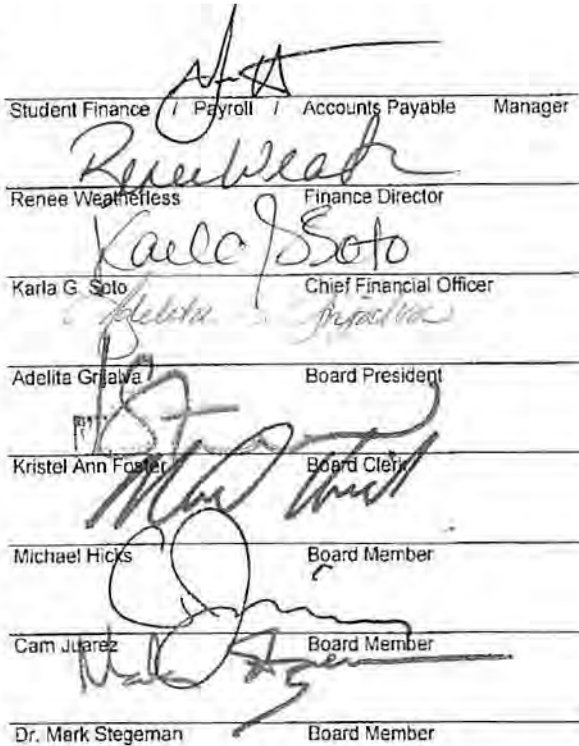 Student Finance / Payroll / Accounts Payable Manager
Renee Weath
Renee Weatherless Finance Director
Karla G Soto
Karla G. Soto Chief Financial Officer
Adelita Grijalva
Adelita Grijalva Board President
Kristel Ann Foster Board Clerk
Michael Hicks Board Member
Cam Juarez Board Member
Mark Stegeman
Dr. Mark Stegeman Board Member